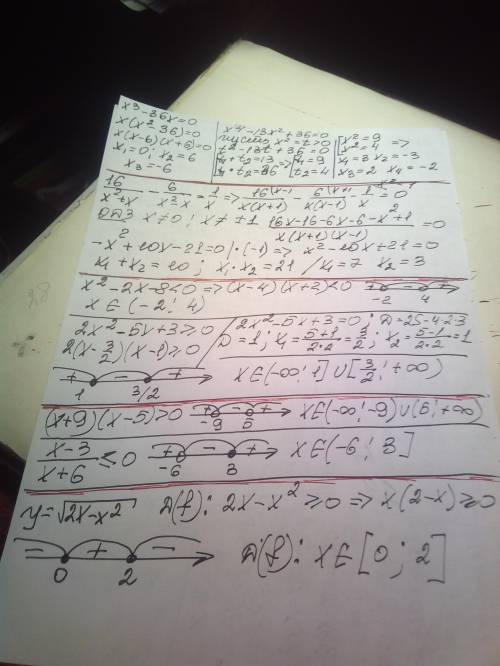 x³-36x=0
x(x²-36)=0
x(x-6)(x+6)=0
x₁=0; x₂=6
x₃=-6
x⁴-13x²+36=0
пусть x²=t>0
t²-13t+36=0
t₁+t₂=13 => [t₁=9
t₁·t₂=36 [t₂=4
[x²=9 =>
[x²=4
x₁=3 x₂=-3
x₃=2 x₄=-2
16/(x²+x) - 6/(x²-x) = 1/x => 16(x-1)/(x(x+1)) - 6(x+1)/(x(x-1)) - 1/x = 0
ОДЗ x≠0; x≠±1 (16x-16-6x-6-x²+1)/(x(x+1)(x-1)) = 0
-x²+10x-21=0 |·(-1) => x²-10x+21=0
x₁+x₂=10; x₁·x₂=21 / x₁=7 x₂=3
x²-2x-8<0 => (x-4)(x+2)<0 + - + -2 4
x∈(-2; 4)
2x²-5x+3≥0
2(x-3/2)(x-1)≥0
+ - +
1 3/2
2x²-5x+3=0; D=25-4·2·3
D=1; x₁=(5+1)/(2·2)=3/2; x₂=(5-1)/(2·2)=1
x∈(-∞; 1]∪[3/2; +∞)
(x+9)(x-5)>0 + - + -9 5 x∈(-∞;-9)∪(5; +∞)
(x-3)/(x+6) ≤0 + - + -6 3 x∈(-6; 3]
y=√(2x-x²) D(f): 2x-x²≥0 => x(2-x)≥0
- + -
0 2
D(f): x∈[0; 2]